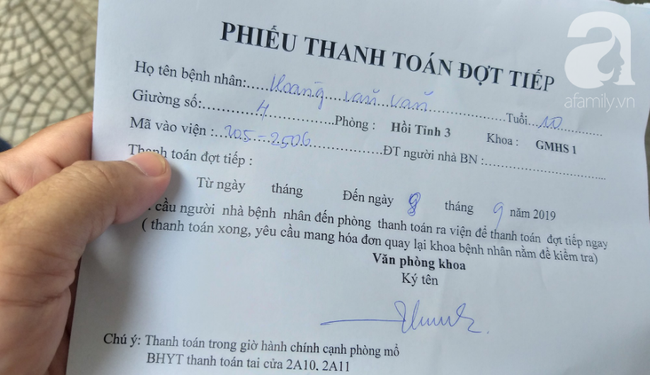 afamily.vn
PHIẾU THANH TOÁN ĐỢT TIẾP
Họ tên bệnh nhân: Hoàng Văn Tuổi: 10
Giường số: 4 Phòng : Hồi Tỉnh 3 Khoa : GMHS 1
Mã vào viện : 205-2506 ĐT người nhà BN :
Thanh toán đợt tiếp :
Từ ngày tháng Đến ngày 8 tháng 9 năm 2019
cầu người nhà bệnh nhân đến phòng thanh toán ra viện để thanh toán đợt tiếp ngay
( thanh toán xong, yêu cầu mang hóa đơn quay lại khoa bệnh nhân nằm để kiểm tra)
Văn phòng khoa
Ký tên
Chú ý: Thanh toán trong giờ hành chính cạnh phòng mổ
BHYT thanh toán tai cửa 2A10, 2A11